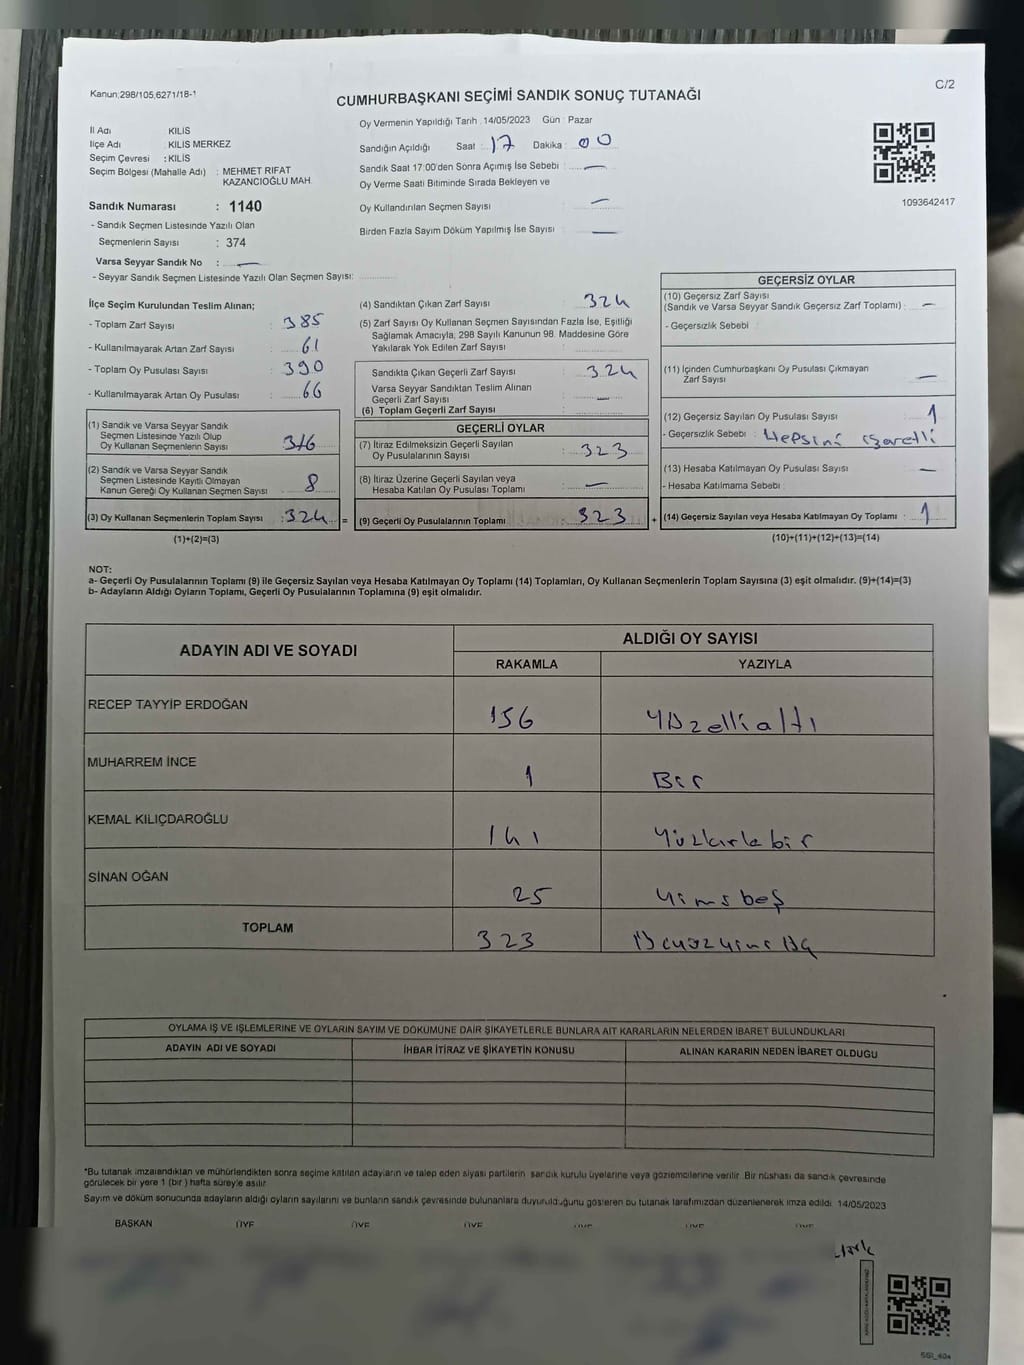 C/2
Kanun;298/105,6271/18-1
CUMHURBAŞKANI SEÇİMİ SANDIK SONUÇ TUTANAĞI
İl Adı KİLİS
İlçe Adı : KİLİS MERKEZ
Seçim Çevresi : KİLİS
Seçim Bölgesi (Mahalle Adı) : MEHMET RIFAT
KAZANCIOĞLU MAH.
Sandık Numarası : 1140
- Sandık Seçmen Listesinde Yazılı Olan
Seçmenlerin Sayısı : 374
Varsa Seyyar Sandık No : —
- Seyyar Sandık Seçmen Listesinde Yazılı Olan Seçmen Sayısı:
Oy Vermenin Yapıldığı Tarih :14/05/2023 Gün : Pazar
Sandığın Açıldığı Saat : 17 Dakika : 00
Sandık Saat 17:00'den Sonra Açımış İse Sebebi : —
Oy Verme Saati Bitiminde Sırada Bekleyen ve
Oy Kullandırılan Seçmen Sayısı —
Birden Fazla Sayım Döküm Yapılmış İse Sayısı —
1093642417
İlçe Seçim Kurulundan Teslim Alınan;
- Toplam Zarf Sayısı : 385
- Kullanılmayarak Artan Zarf Sayısı : 61
- Toplam Oy Pusulası Sayısı : 390
- Kullanılmayarak Artan Oy Pusulası : 66
(1) Sandık ve Varsa Seyyar Sandık
Seçmen Listesinde Yazılı Olup
Oy Kullanan Seçmenlerin Sayısı : 316
(2) Sandık ve Varsa Seyyar Sandık
Seçmen Listesinde Kayıtlı Olmayan
Kanun Gereği Oy Kullanan Seçmen Sayısı : 8
(3) Oy Kullanan Seçmenlerin Toplam Sayısı : 324 =
(1)+(2)=(3)
(4) Sandıktan Çıkan Zarf Sayısı 324
(5) Zarf Sayısı Oy Kullanan Seçmen Sayısından Fazla İse, Eşitliği
Sağlamak Amacıyla, 298 Sayılı Kanunun 98. Maddesine Göre
Yakılarak Yok Edilen Zarf Sayısı :
Sandıkta Çıkan Geçerli Zarf Sayısı : 324
Varsa Seyyar Sandıktan Teslim Alınan
Geçerli Zarf Sayısı : —
(6) Toplam Geçerli Zarf Sayısı :
GEÇERLİ OYLAR
(7) İtiraz Edilmeksizin Geçerli Sayılan
Oy Pusulalarının Sayısı : 323
(8) İtiraz Üzerine Geçerli Sayılan veya
Hesaba Katılan Oy Pusulası Toplamı : —
(9) Geçerli Oy Pusulalarının Toplamı : 323 +
GEÇERSİZ OYLAR
(10) Geçersiz Zarf Sayısı
(Sandık ve Varsa Seyyar Sandık Geçersiz Zarf Toplamı) : —
- Geçersizlik Sebebi :
(11) İçinden Cumhurbaşkanı Oy Pusulası Çıkmayan
Zarf Sayısı : —
(12) Geçersiz Sayılan Oy Pusulası Sayısı : 1
- Geçersizlik Sebebi : Hepsini işaretli
(13) Hesaba Katılmayan Oy Pusulası Sayısı : —
- Hesaba Katılmama Sebebi :
(14) Geçersiz Sayılan veya Hesaba Katılmayan Oy Toplamı : 1
(10)+(11)+(12)+(13)=(14)
NOT:
a- Geçerli Oy Pusulalarının Toplamı (9) ile Geçersiz Sayılan veya Hesaba Katılmayan Oy Toplamı (14) Toplamları, Oy Kullanan Seçmenlerin Toplam Sayısına (3) eşit olmalıdır. (9)+(14)=(3)
b- Adayların Aldığı Oyların Toplamı, Geçerli Oy Pusulalarının Toplamına (9) eşit olmalıdır.
ADAYIN ADI VE SOYADI
ALDIĞI OY SAYISI
RAKAMLA YAZIYLA
RECEP TAYYİP ERDOĞAN 156 Yüzellialtı
MUHARREM İNCE 1 Bir
KEMAL KILIÇDAROĞLU 141 Yüzkırkbir
SİNAN OĞAN 25 Yirmibeş
TOPLAM 323 Üçyüzyirmiüç
OYLAMA İŞ VE İŞLEMLERİNE VE OYLARIN SAYIM VE DÖKÜMÜNE DAİR ŞİKAYETLERLE BUNLARA AİT KARARLARIN NELERDEN İBARET BULUNDUKLARI
ADAYIN ADI VE SOYADI İHBAR İTİRAZ VE ŞİKAYETİN KONUSU ALINAN KARARIN NEDEN İBARET OLDUĞU
*Bu tutanak imzalandıktan ve mühürlendikten sonra seçime katılan adayların ve talep eden siyasi partilerin sandık kurulu üyelerine veya gözlemcilerine verilir. Bir nüshası da sandık çevresinde
görülecek bir yere 1 (bir) hafta süreyle asılır.
Sayım ve döküm sonucunda adayların aldığı oyların sayılarını ve bunların sandık çevresinde bulunanlara duyurulduğunu gösteren bu tutanak tarafımızdan düzenlenerek imza edildi. 14/05/2023
BAŞKAN ÜYE ÜYE ÜYE ÜYE ÜYE ÜYE